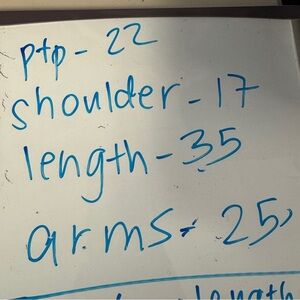 ptp - 22
shoulder - 17
length - 35
arms - 25
length